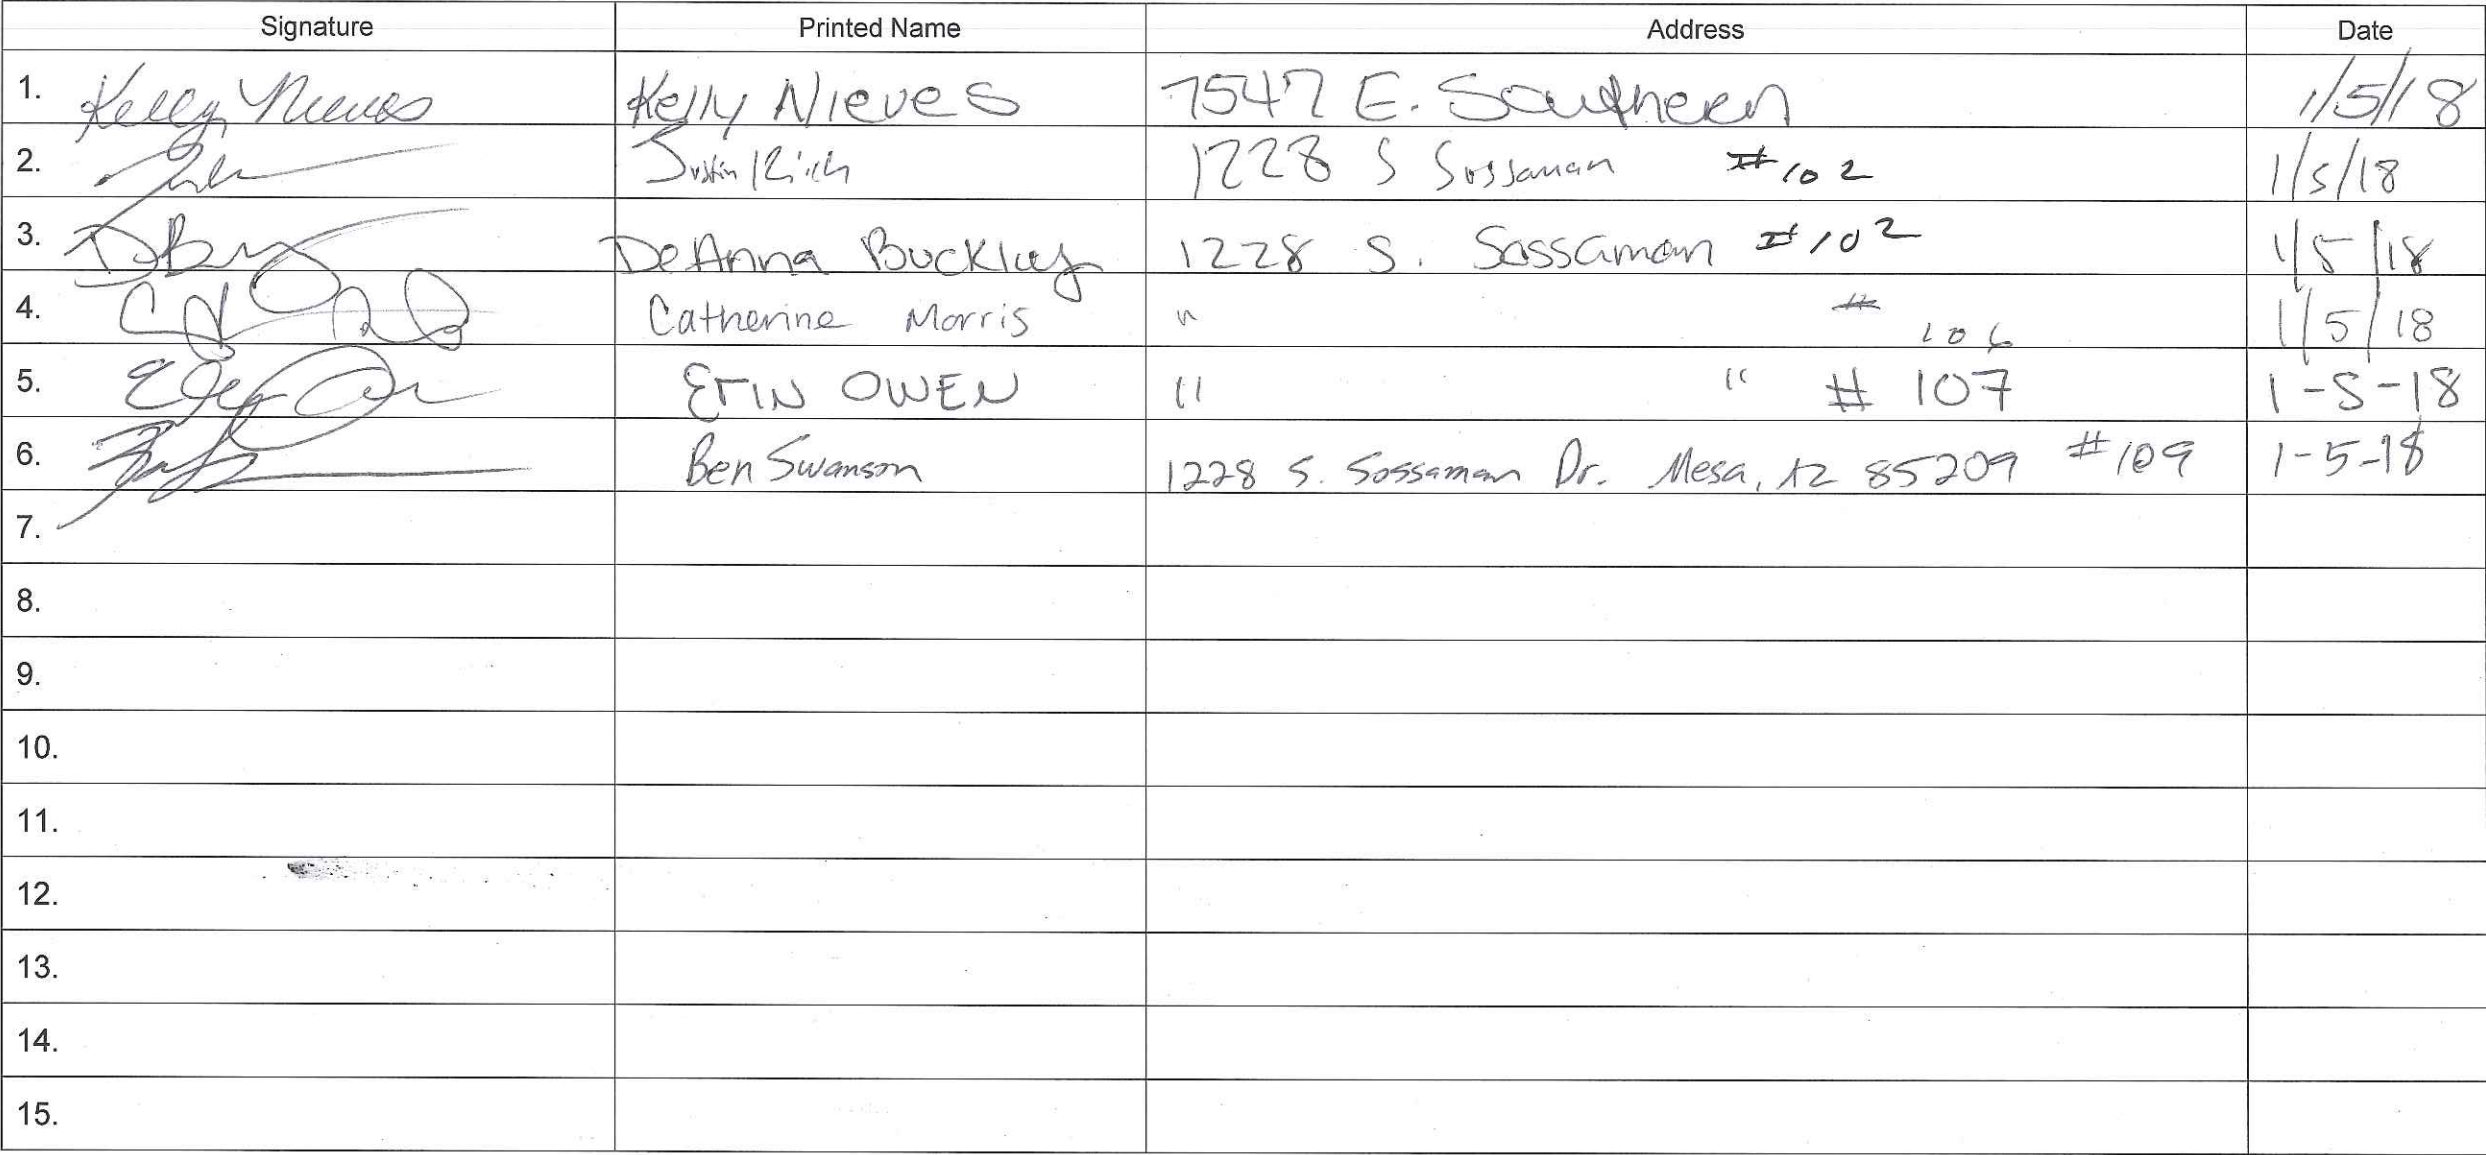 Signature Printed Name Address Date
1. Kelly Nieves Kelly Nieves 7547 E. Southern 1/5/18
2. Justin Rich 1228 S Sossaman #102 1/5/18
3. DeAnna Buckley 1228 S. Sossaman #102 1/5/18
4. Catherine Morris " # 106 1/5/18
5. Erin OWEN " " # 107 1-5-18
6. Ben Swanson 1228 S. Sossaman Dr. Mesa, AZ 85209 #109 1-5-18
7.
8.
9.
10.
11.
12.
13.
14.
15.